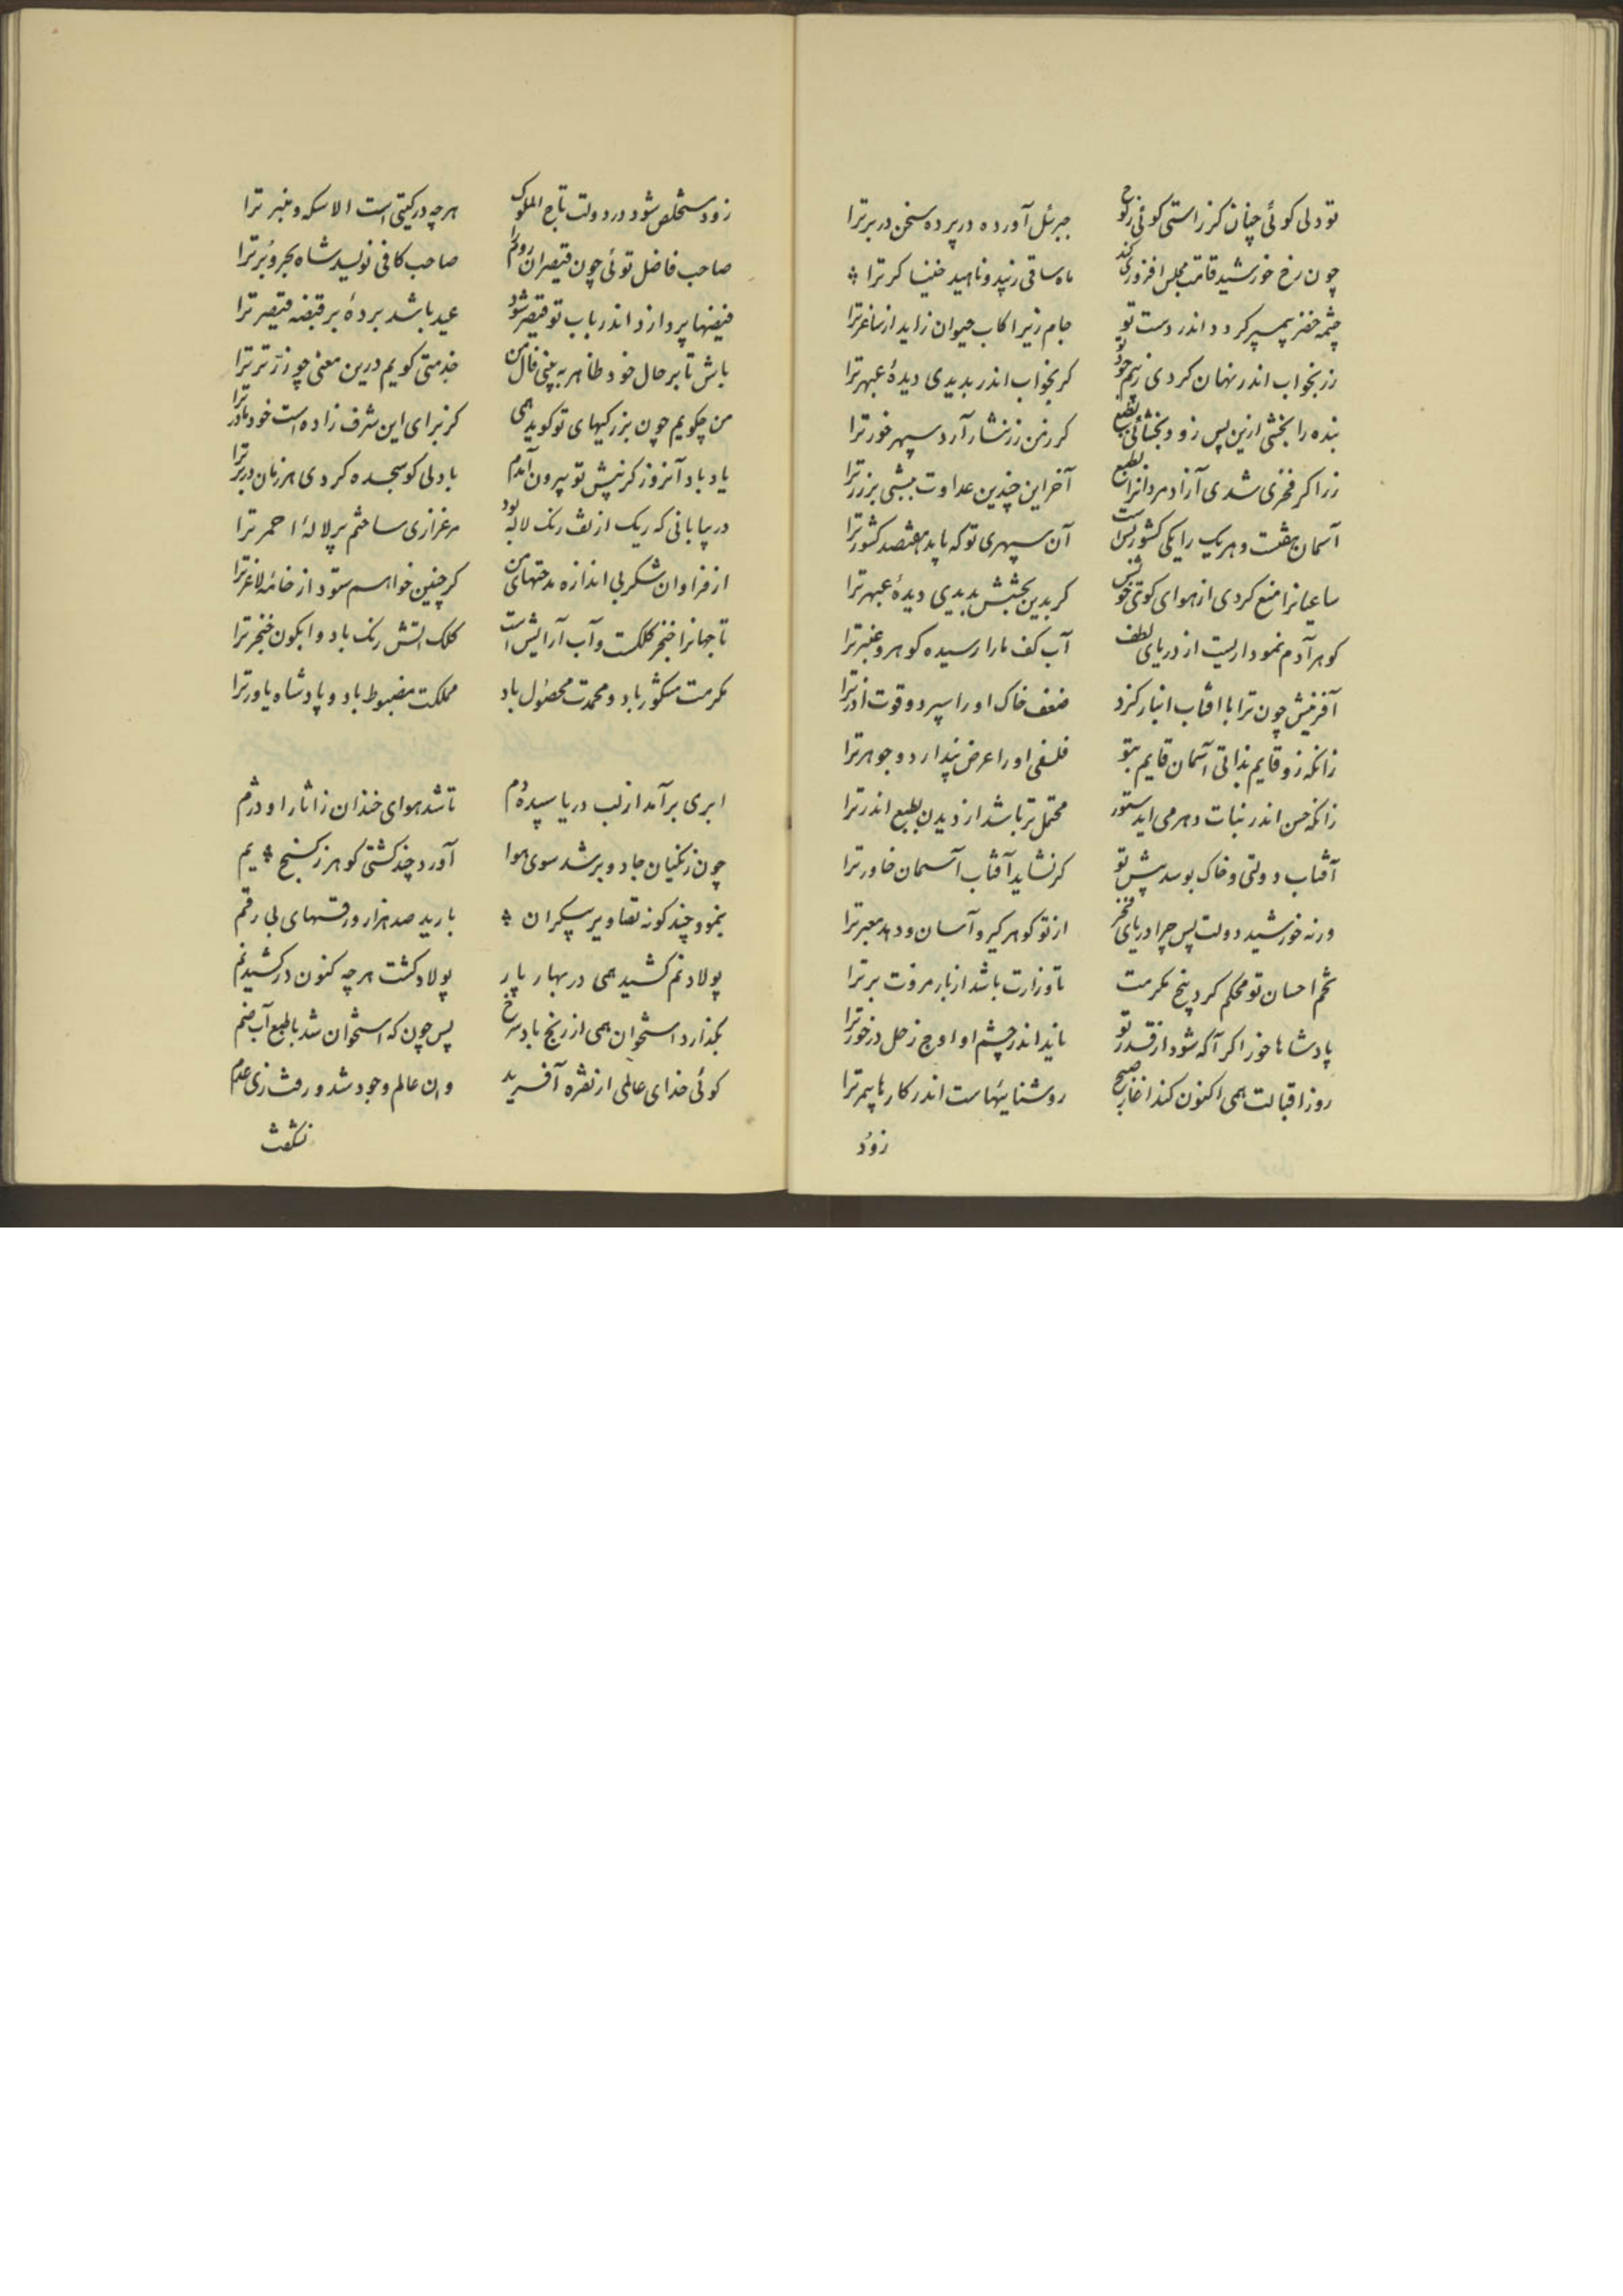 تو دلی کوئی چنان کز راستی کوئی ز روح
جبرئیل آورده در پرده سخن در بر ترا
چون رخ خورشید قامت مجلس افروزی کند
ماه ساقی زیبد و ناهید خنیا کر ترا
چشمه خضر پیمبر کردد اندر دست تو
جام زیرا کاب حیوان زاید از ساغر ترا
زر بخواب اندر نهان کردی ز بیم جود تو
کر بخواب اندر بدیدی دیدهٔ عبهر ترا
بنده را بخشی ازین پس زود بخشائی بطبع
کر زمن زر نثار آرد سپهر خور ترا
زر اکر فخری شدی آزاد مردانرا بطبع
آخر این چندین عداوت نیستی بر زر ترا
آسمان هفتست و هریک را یکی کشور بس است
آن سپهری تو که باید هفتصد کشور ترا
ساعیانرا منع کردی از هوای کوی خویش
کر بدین بخشش بدیدی دیدهٔ عبهر ترا
کوهر آدم نموداریست از دریای لطف
آب کف ما را رسیده کوهر و عنبر ترا
آفرینش چون ترا با افتاب انباز کرد
ضعف خاک او را سپرد و قوت آذر ترا
زانکه زو قایم بذاتی آسمان قایم بتو
فلسفی او را عرض پندارد و جوهر ترا
زانکه حس اندر نبات دهر می اید ستور
محتمل تر باشد از دیدن بطبع اندر ترا
آفتاب دولتی و خاک بوسد پیش تو
کر نشاید آفتاب آسمان خاور ترا
ورنه خورشید دولت پس چرا دریای فخر
از تو کوهر کیرد آسان و دهد معبر ترا
تخم احسان تو محکم کرد بیخ مکرمت
تا وزارت باشد از بار مروت بر ترا
پادشاها خور اکر آکه شود از قدر تو
ناید اندر چشم او اوج زحل در خور ترا
روز اقبالت همی اکنون کند اغاز صبح
روشنائیهاست اندر کارها بیمر ترا
زود
زود مستخلص شود در دولت تاج الملوک
هرچه در کیتی است الا سکه و منبر ترا
صاحب فاضل توئی چون قیصران روم را
صاحب کافی نویسد شاه بحر و بر ترا
فیضها پردازد اندر باب تو قیصر شود
عید باشد بردهٔ بر قبضه قیصر ترا
باش تا بر حال خود ظاهر ببینی فال من
خدمتی کویم درین معنی چو زر تر ترا
من چکویم چون بزرکیهای تو کوید همی
کز برای این شرف زاده است خود مادر ترا
یاد باد آنروز کز پیش تو بیرون آمدم
با دلی کو سجده کردی هر زمان در بر ترا
در بیابانی که ریک از تف رنک لاله بود
مرغزاری ساختم پر لالهٔ احمر ترا
از فراوان شکر بی اندازه مدحتهای من
کر چنین خواهم ستود از خامه لاغر ترا
تا جهانرا خنجر کلکست و آب آرایش است
کلک اتش رنک باد و ابکون خنجر ترا
مکرمت مشکور باد و محمدت محصول باد
مملکت مضبوط باد و پادشاه یاور ترا
ابری برآمد از لب دریا سپیده دم
تا شد هوای خندان ز اثار او دژم
چون زنکیان جادو بر شد سوی هوا
آورد چند کشتی کوهر ز کنج یم
بنمود چند کونه تصاویر بیکران
بارید صد هزار ورقهای بی رقم
پولاد نم کشید همی در بهار پار
پولاد کشت هرچه کنون در کشید نم
بگذارد استخوان همی از رنج باد سرخ
پس چون که استخوان شد با طبع آب ضم
کوئی خدای عالمی از نقره آفرید
وان عالم وجود شد و رفت زی عدم
نشکفت